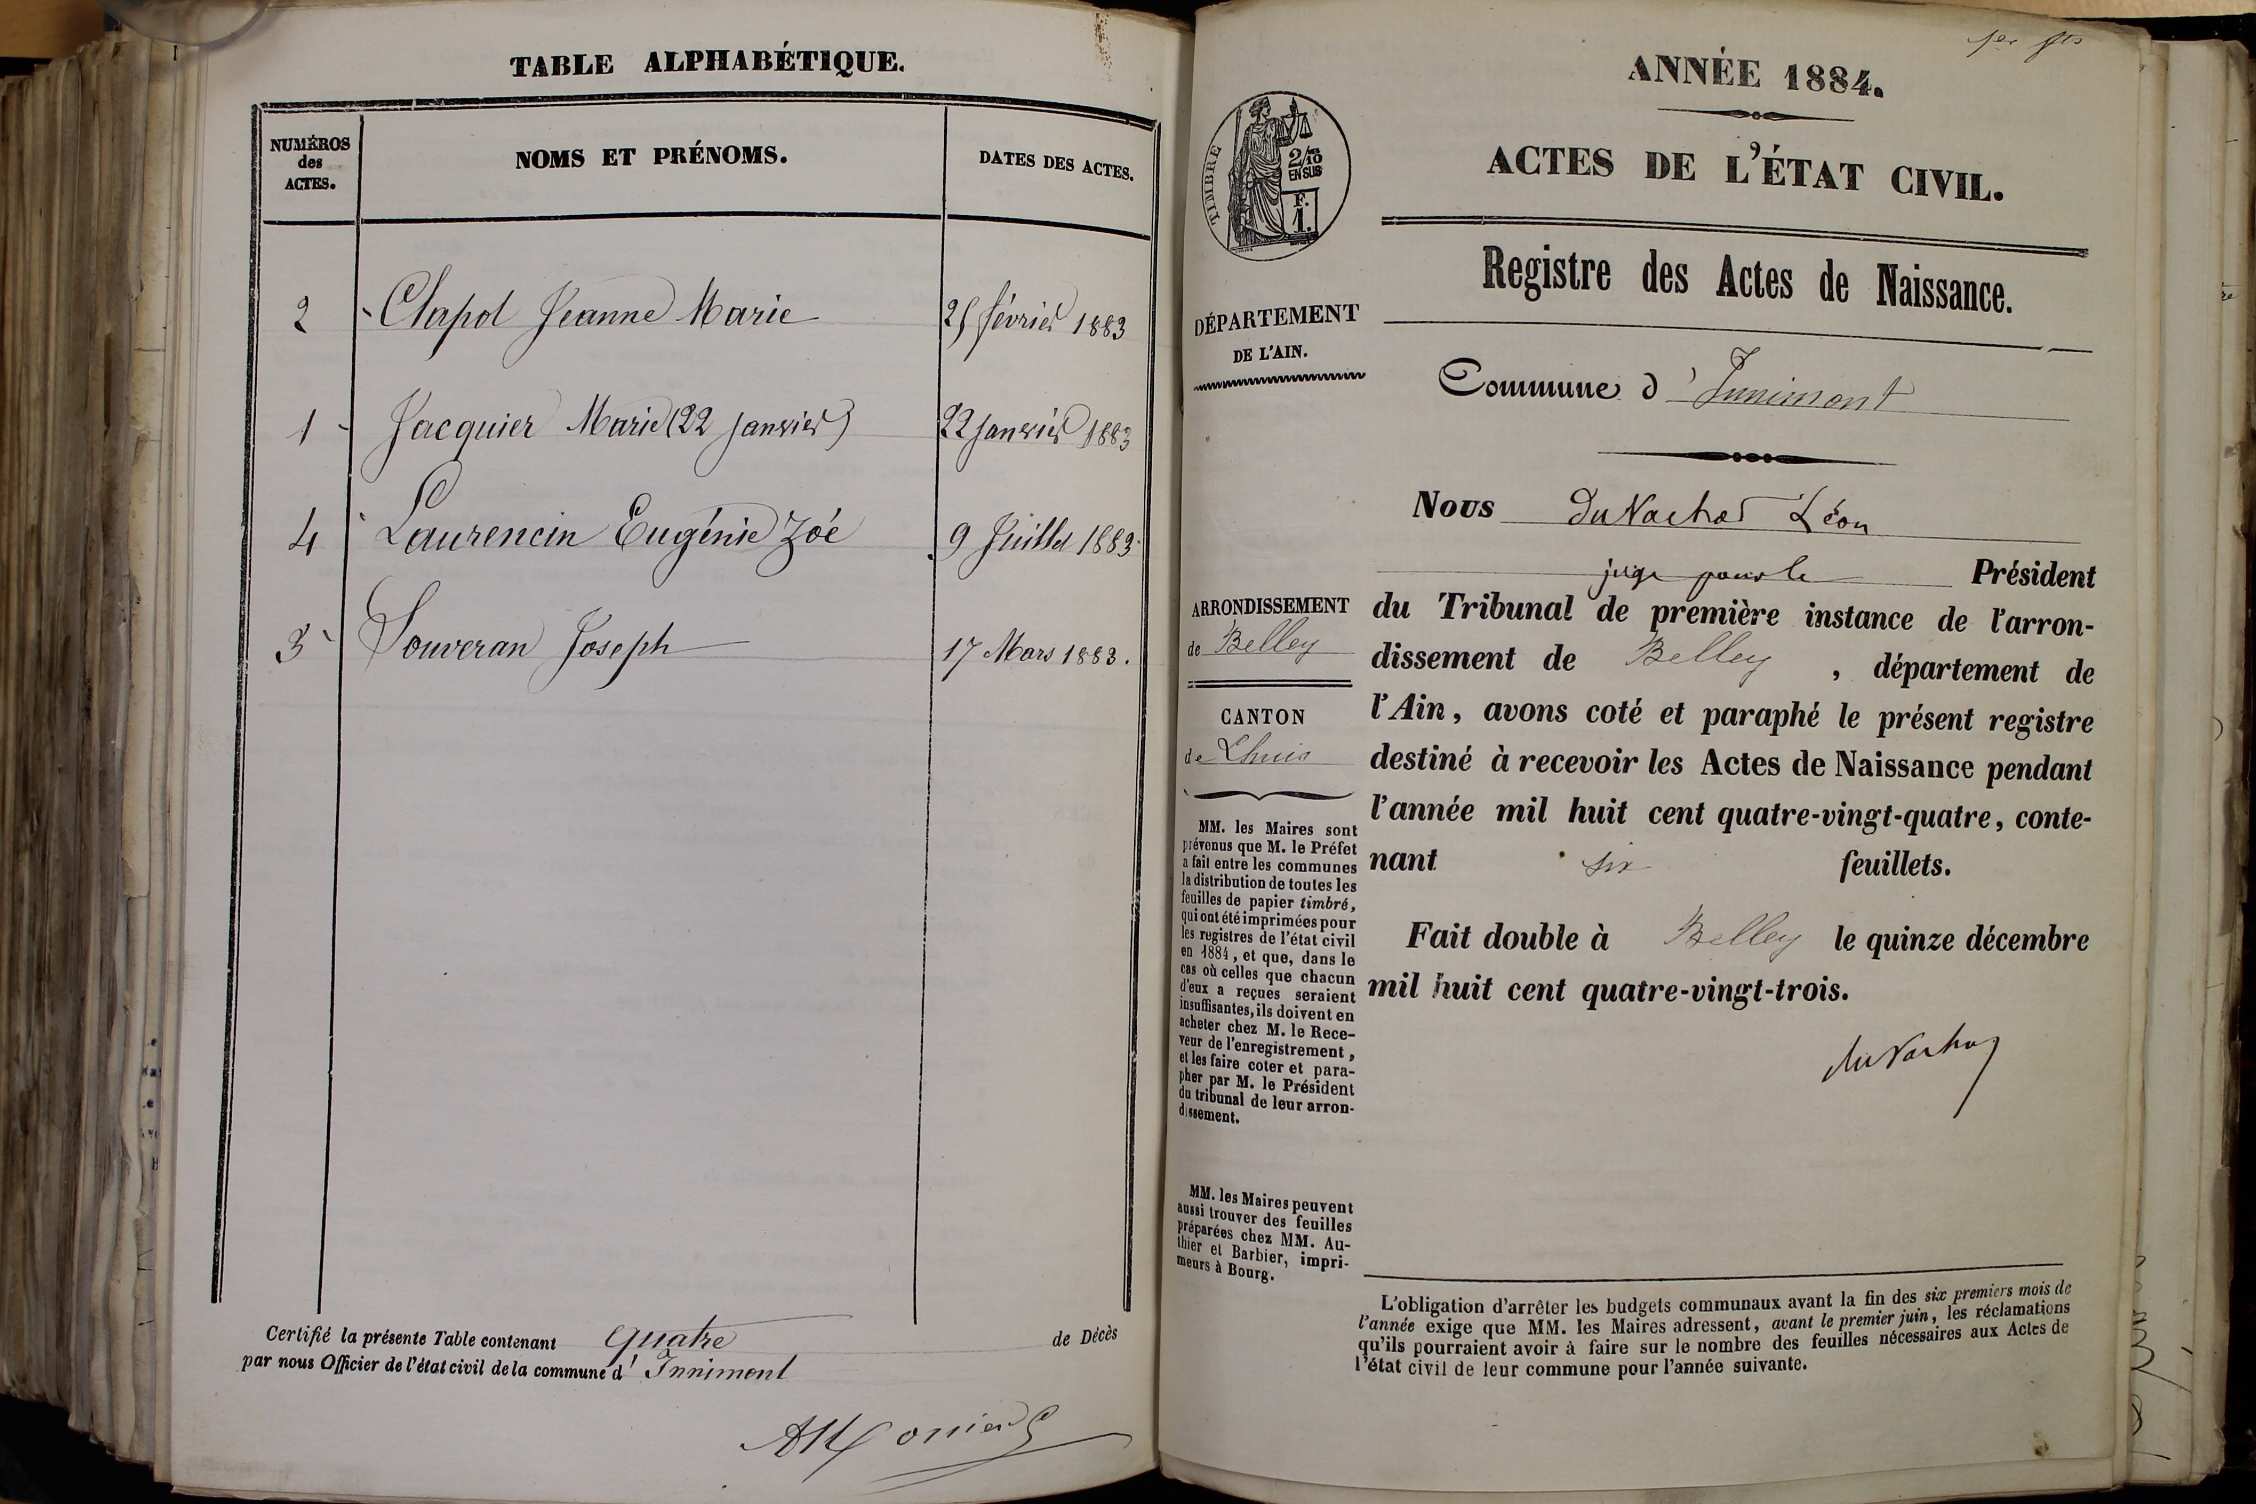 TABLE ALPHABÉTIQUE.
NUMÉROS
des
ACTES.
NOMS ET PRÉNOMS.
DATES DES ACTES.
2 Chapot Jeanne Marie 25 février 1883
1 Jacquier Marie (22 janvier) 22 janvier 1883
4 Laurencin Eugénie Zoé 9 Juillet 1883
3 Souveran Joseph 17 Mars 1883.
Certifié la présente Table contenant quatre de Décès
par nous Officier de l'état civil de la commune d' Innimont
1er
ANNÉE 1884.
ACTES DE L'ÉTAT CIVIL.
TIMBRE
2/10
EN SUS
F.
1.
Registre des Actes de Naissance.
DÉPARTEMENT
DE L'AIN.
Commune d' Innimont
Nous Du Vachat Léon
juge pour le Président
ARRONDISSEMENT
de Belley
CANTON
de Lhuis
du Tribunal de première instance de l'arron-
dissement de Belley, département de
l'Ain, avons coté et paraphé le présent registre
destiné à recevoir les Actes de Naissance pendant
l'année mil huit cent quatre-vingt-quatre, conte-
nant six feuillets.
Fait double à Belley le quinze décembre
mil huit cent quatre-vingt-trois.
du Vachat
MM. les Maires sont
prévenus que M. le Préfet
a fait entre les communes
la distribution de toutes les
feuilles de papier timbré,
qui ont été imprimées pour
les registres de l'état civil
en 1884, et que, dans le
cas où celles que chacun
d'eux a reçues seraient
insuffisantes, ils doivent en
acheter chez M. le Rece-
veur de l'enregistrement,
et les faire coter et para-
pher par M. le Président
du tribunal de leur arron-
dissement.
MM. les Maires peuvent
aussi trouver des feuilles
préparées chez MM. Au-
thier et Barbier, impri-
meurs à Bourg.
L'obligation d'arrêter les budgets communaux avant la fin des six premiers mois de
l'année exige que MM. les Maires adressent, avant le premier juin, les réclamations
qu'ils pourraient avoir à faire sur le nombre des feuilles nécessaires aux Actes de
l'état civil de leur commune pour l'année suivante.